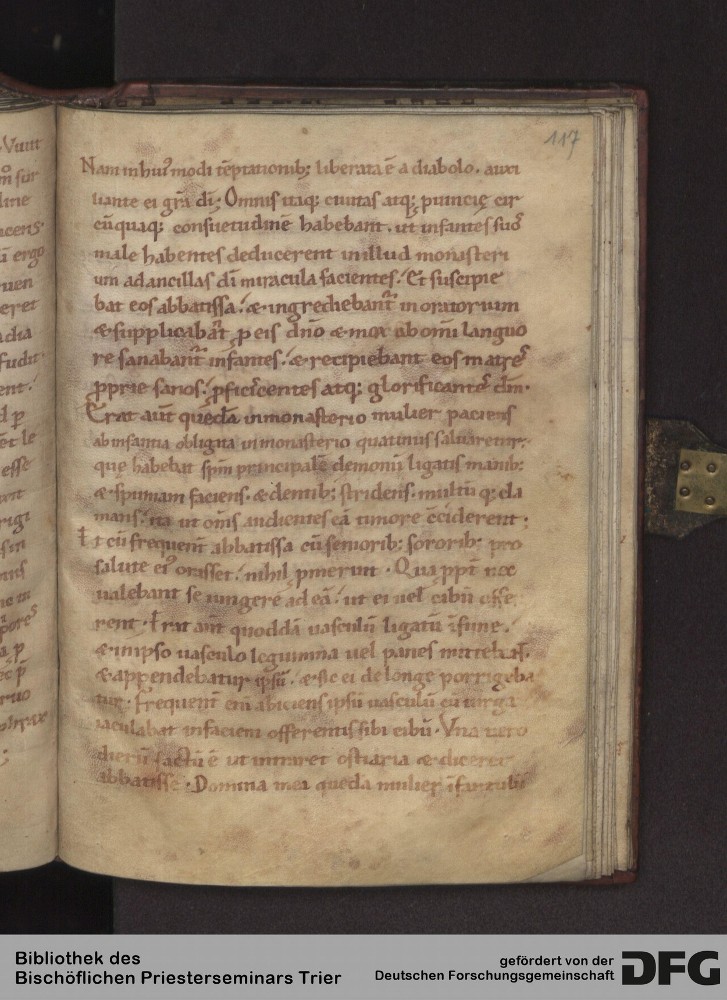 117
Nam in hui᷒modi tēptationib; liberata ē a diabolo. auxi
liante ei grā dī; Omnis itaq; ciuitas atq; ꝓuincię cir
cūquaq; consuetudinē habebant. ut infantes suos
male habentes deducerent in illud monasteri
um ad ancillas dī miracula facientes. Et suscipie
bat eos abbatissa. & ingrediebant in oratorium
& supplicabāt ꝓ eis dn̄o & mox ab omī languo
re sanabant infantes. & recipiebant eos matres
ꝓprie sanos. ꝓficiscentes atq; glorificantes dm̄.
Erat aut̄ quędā in monasterio mulier paciens
ab insania obligata in monasterio quatinus saluaretur.
quę habebat spm̄ principalē demonū ligatis manib;
& spumam faciens. & dentib; stridens. multū q; cla
mans. ita ut om̄s audientes eā timore cciderent.
Et cū frequent̄ abbatissa cū seniorib; sororib; pro
salute ei᷒ orasset. nihil ꝓmerunt. Qua ꝓpt̄ nec
ualebant se iungere ad eā. ut ei uel cibū offer
rent. Erat aut̄ quoddā uasculū ligatū ī fune.
& in ipso uasculo legumina uel panes mittebāt.
& appendebatur ipsū. & sic ei de longe porrigeba
tur. Frequent̄ eni abiciens ipsū uasculū cū uirga
iaculabat in faciem offerentis sibi cibū. Vna uero
dierū factū ē ut intraret ostiaria & diceret
abbatisse. Domina mea quedā mulier
Bibliothek des
Bischöflichen Priesterseminars Trier
gefördert von der
Deutschen Forschungsgemeinschaft
DFG